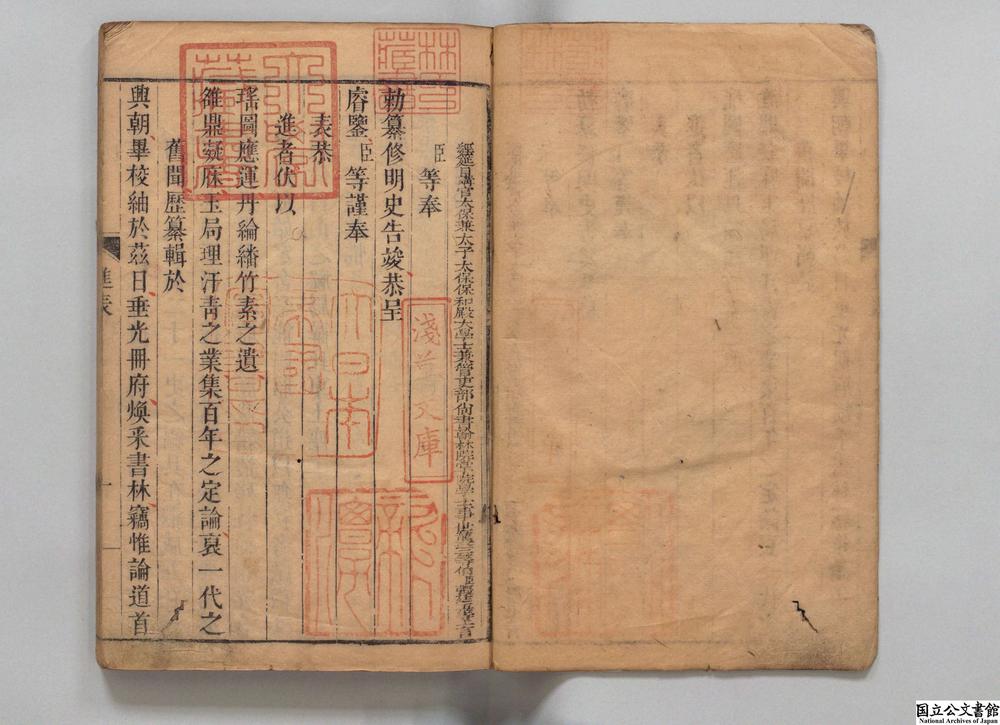 經筵日講官太保兼太子太保保和殿大學士兼管吏部尚書翰林院掌院學士事世襲三等伯臣張廷玉等上言
臣等奉
勅纂修明史告竣恭呈
睿鑒臣等謹奉
表恭
進者伏以
瑤圖應運丹綸繙竹素之遺
雒鼎凝庥玉局理汗靑之業集百年之定論裒一代之
舊聞歷纂輯於
興朝畢校紬於茲日垂光冊府煥釆書林竊惟論道首
進表
一
淺草文庫
日本
林氏藏書
国立公文書館
National Archives of Japan